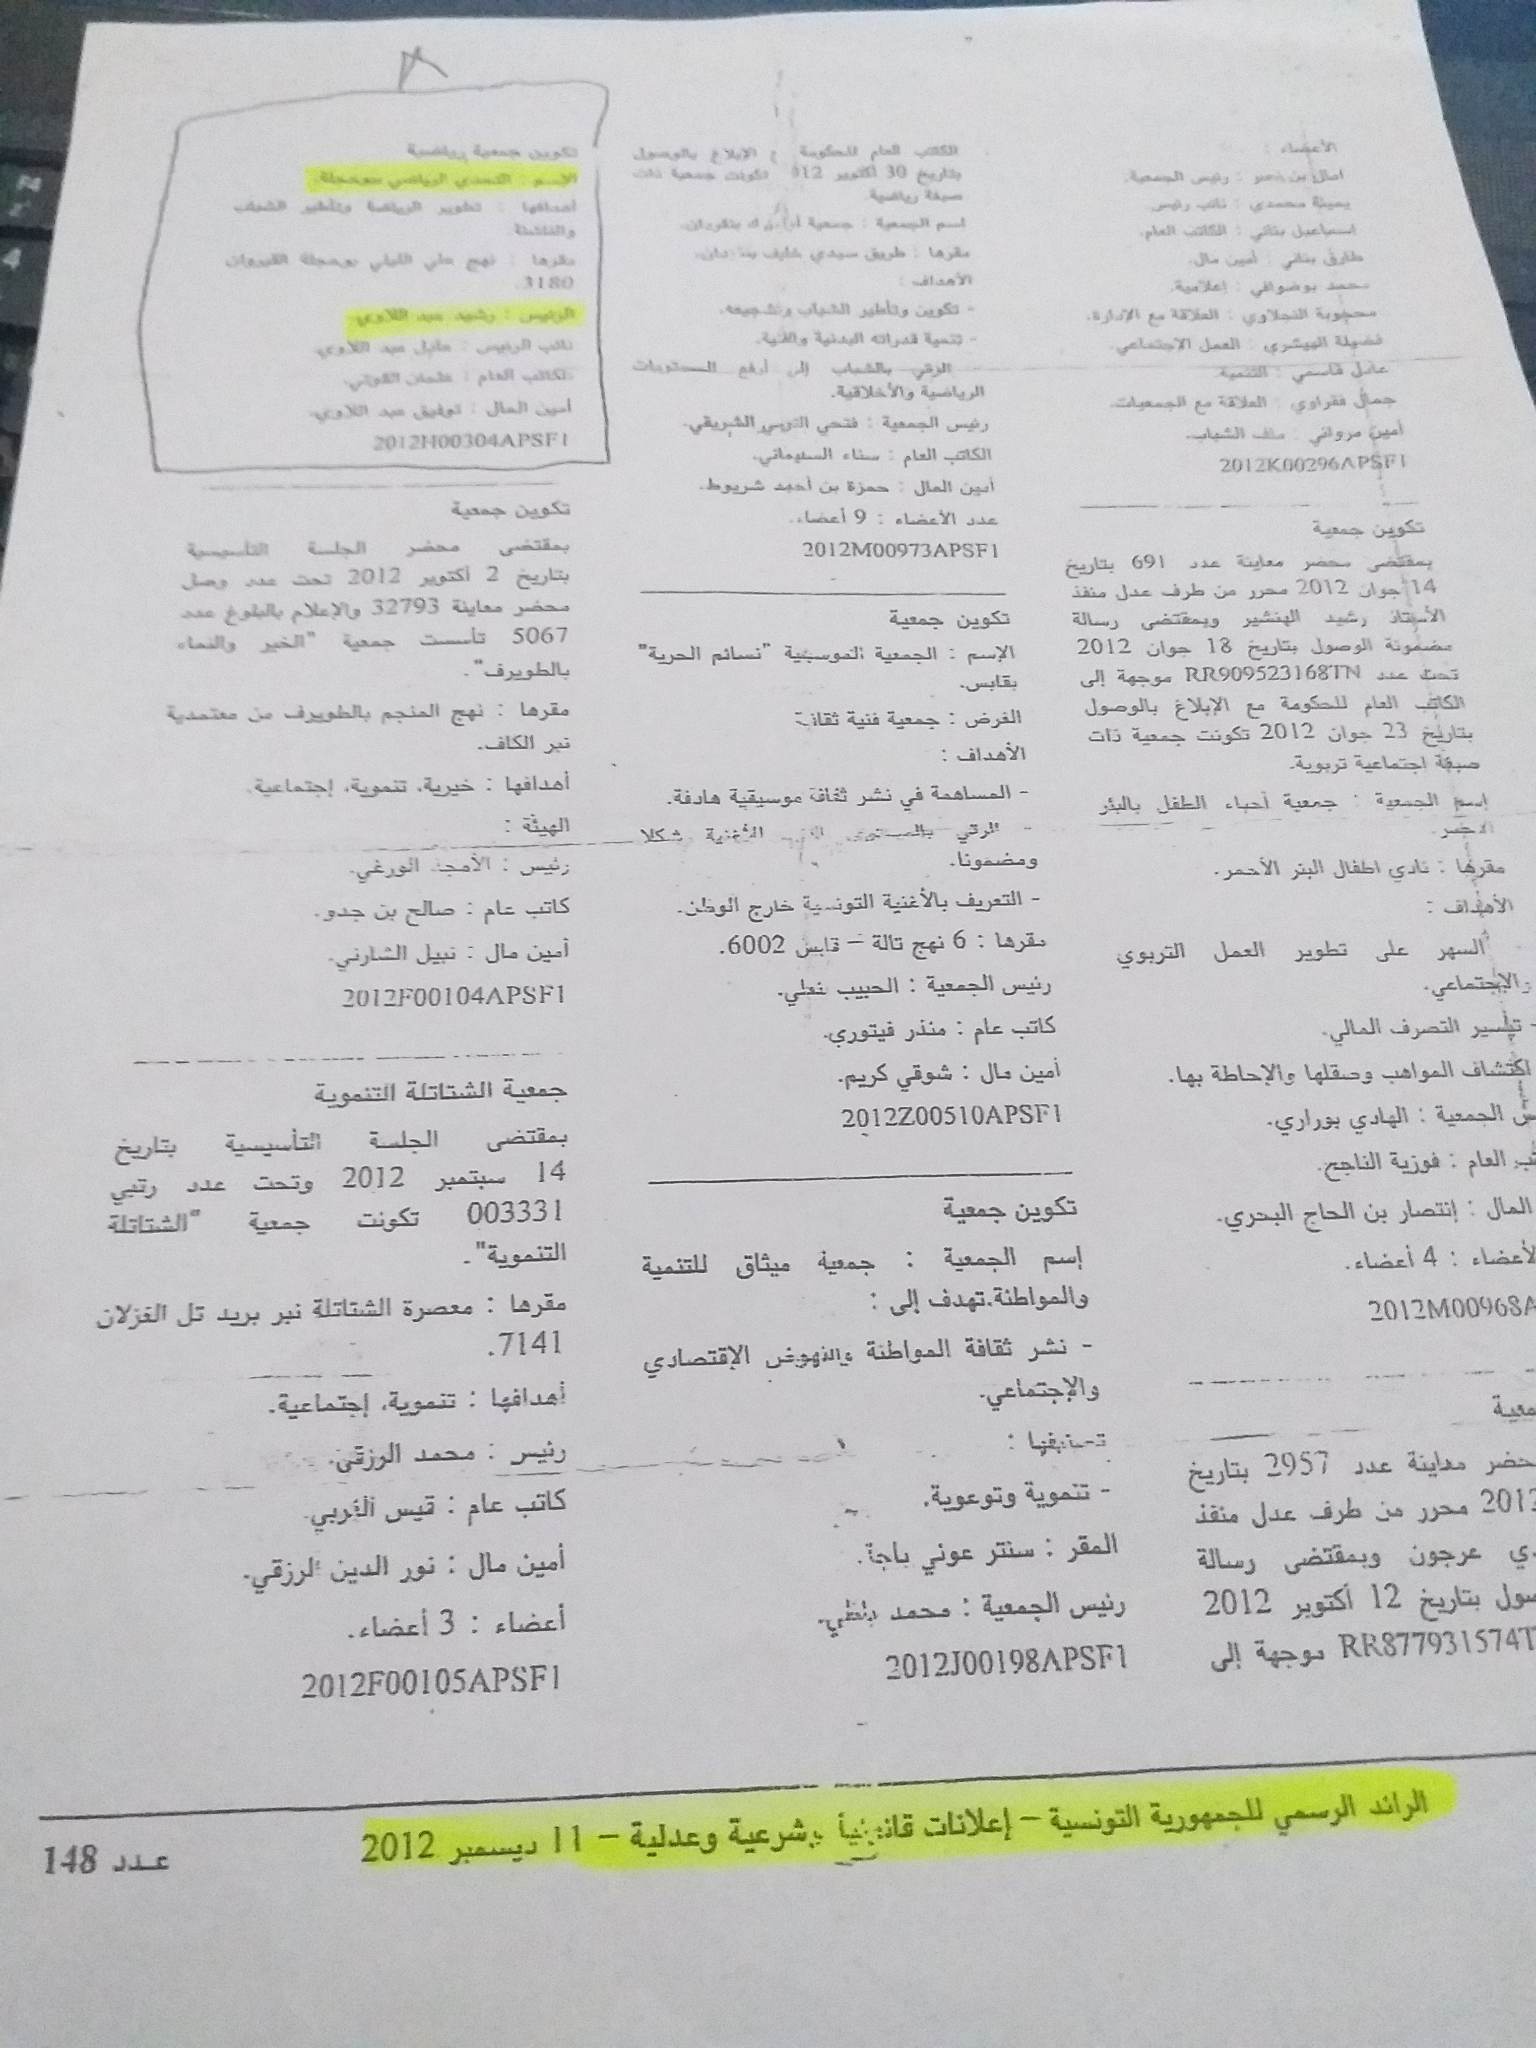 الأعضاء :
رئيس الجمعية.
يمينة محمدي : نائب رئيس.
إسماعيل بناني : الكاتب العام.
طارق بناني : أمين مال.
محمد بوضوافي : إعلامية.
محجوبة النجلاوي : العلاقة مع الإدارة.
فضيلة الهيشري : العمل الإجتماعي.
عادل قاسمي : التنمية.
جمال فقراوي : العلاقة مع الجمعيات.
أمين مرواني : ملف الشباب.
2012K00296APSF1
تكوين جمعية
بمقتضى محضر معاينة عدد 691 بتاريخ
14 جوان 2012 محرر من طرف عدل منفذ
الأستاذ رشيد الهنشير وبمقتضى رسالة
مضمونة الوصول بتاريخ 18 جوان 2012
تحت عدد RR909523168TN موجهة إلى
الكاتب العام للحكومة مع الإبلاغ بالوصول
بتاريخ 23 جوان 2012 تكونت جمعية ذات
صبغة اجتماعية تربوية.
إسم الجمعية : جمعية أحباء الطفل بالبئر
مقرها : نادي اطفال البئر الأحمر.
الأهداف :
السهر على تطوير العمل التربوي
والإجتماعي.
- تيسير التصرف المالي.
اكتشاف المواهب وصقلها والإحاطة بها.
س الجمعية : الهادي بوراري.
تب العام : فوزية الناجح.
المال : إنتصار بن الحاج البحري.
لأعضاء : 4 أعضاء.
2012M00968A
معية
حضر معاينة عدد 2957 بتاريخ
2012 محرر من طرف عدل منفذ
ي عرجون وبمقتضى رسالة
سول بتاريخ 12 أكتوبر 2012
RR877931574T موجهة إلى
الكاتب العام للحكومة الإبلاغ بالوصول
بتاريخ 30 أكتوبر تكونت جمعية ذات
صبغة رياضية.
اسم الجمعية : جمعية بنقردان.
مقرها : طريق سيدي خليف
الأهداف :
- تكوين وتأطير الشباب وتشجيعه.
- تنمية قدراته البدنية والفنية.
الرقي بالشباب إلى أرفع المستويات
الرياضية والأخلاقية.
رئيس الجمعية : فتحي التريي الشريقي.
الكاتب العام : سناء السليماني.
أمين المال : حمزة بن أحمد شريوط.
عدد الأعضاء : 9 أعضاء.
2012M00973APSF1
تكوين جمعية
الإسم : الجمعية الموسيقية "نسائم الحرية"
بقابس.
الغرض : جمعية فنية ثقافية
الأهداف :
- المساهمة في نشر ثقافة موسيقية هادفة.
- الرقي بالمستوى الأغنية شكلا
ومضمونا.
- التعريف بالأغنية التونسية خارج الوطن.
مقرها : 6 نهج تالة – قابس 6002.
رئيس الجمعية : الحبيب نعلي.
كاتب عام : منذر فيتوري.
أمين مال : شوقي كريم.
2012Z00510APSF1
تكوين جمعية
إسم الجمعية : جمعية ميثاق للتنمية
والمواطنة.تهدف إلى :
- نشر ثقافة المواطنة والنهوض الإقتصادي
والإجتماعي.
تصنيفها :
- تنموية وتوعوية.
المقر : سنتر عوني باجة.
رئيس الجمعية : محمد
2012J00198APSF1
تكوين جمعية رياضية
الإسم : التحدي الرياضي ببوحجلة.
أهدافها : تطوير الرياضة وتأطير الشباب
والناشئة
مقرها : نهج علي الليلي بوحجلة القيروان
3180.
الرئيس : رشيد عبد اللاوي.
نائب الرئيس : عادل عبد اللاوي.
الكاتب العام : عثمان القوتي.
أمين المال : توفيق عبد اللاوي.
2012H00304APSF1
تكوين جمعية
بمقتضى محضر الجلسة التأسيسية
بتاريخ 2 أكتوبر 2012 تحت عدد وصل
محضر معاينة 32793 والإعلام بالبلوغ عدد
5067 تأسست جمعية "الخير والنماء
بالطويرف".
مقرها : نهج المنجم بالطويرف من معتمدية
نبر الكاف.
أهدافها : خيرية، تنموية، إجتماعية.
الهيئة :
رئيس : الأمجد الورغي.
كاتب عام : صالح بن جدو.
أمين مال : نبيل الشارني.
2012F00104APSF1
جمعية الشتاتلة التنموية
بمقتضى الجلسة التأسيسية بتاريخ
14 سبتمبر 2012 وتحت عدد رتبي
003331 تكونت جمعية "الشتاتلة
التنموية".
مقرها : معصرة الشتاتلة نبر بريد تل الغزلان
7141.
أهدافها : تنموية، إجتماعية.
رئيس : محمد الرزقي.
كاتب عام : قيس الغربي.
أمين مال : نور الدين الرزقي.
أعضاء : 3 أعضاء.
2012F00105APSF1
الرائد الرسمي للجمهورية التونسية – إعلانات قانونية وشرعية وعدلية – 11 ديسمبر 2012
عـدد 148